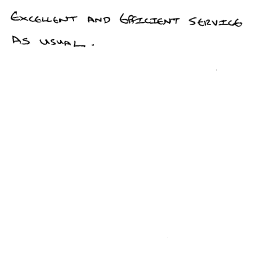 Excellent and Efficient service
As usual.